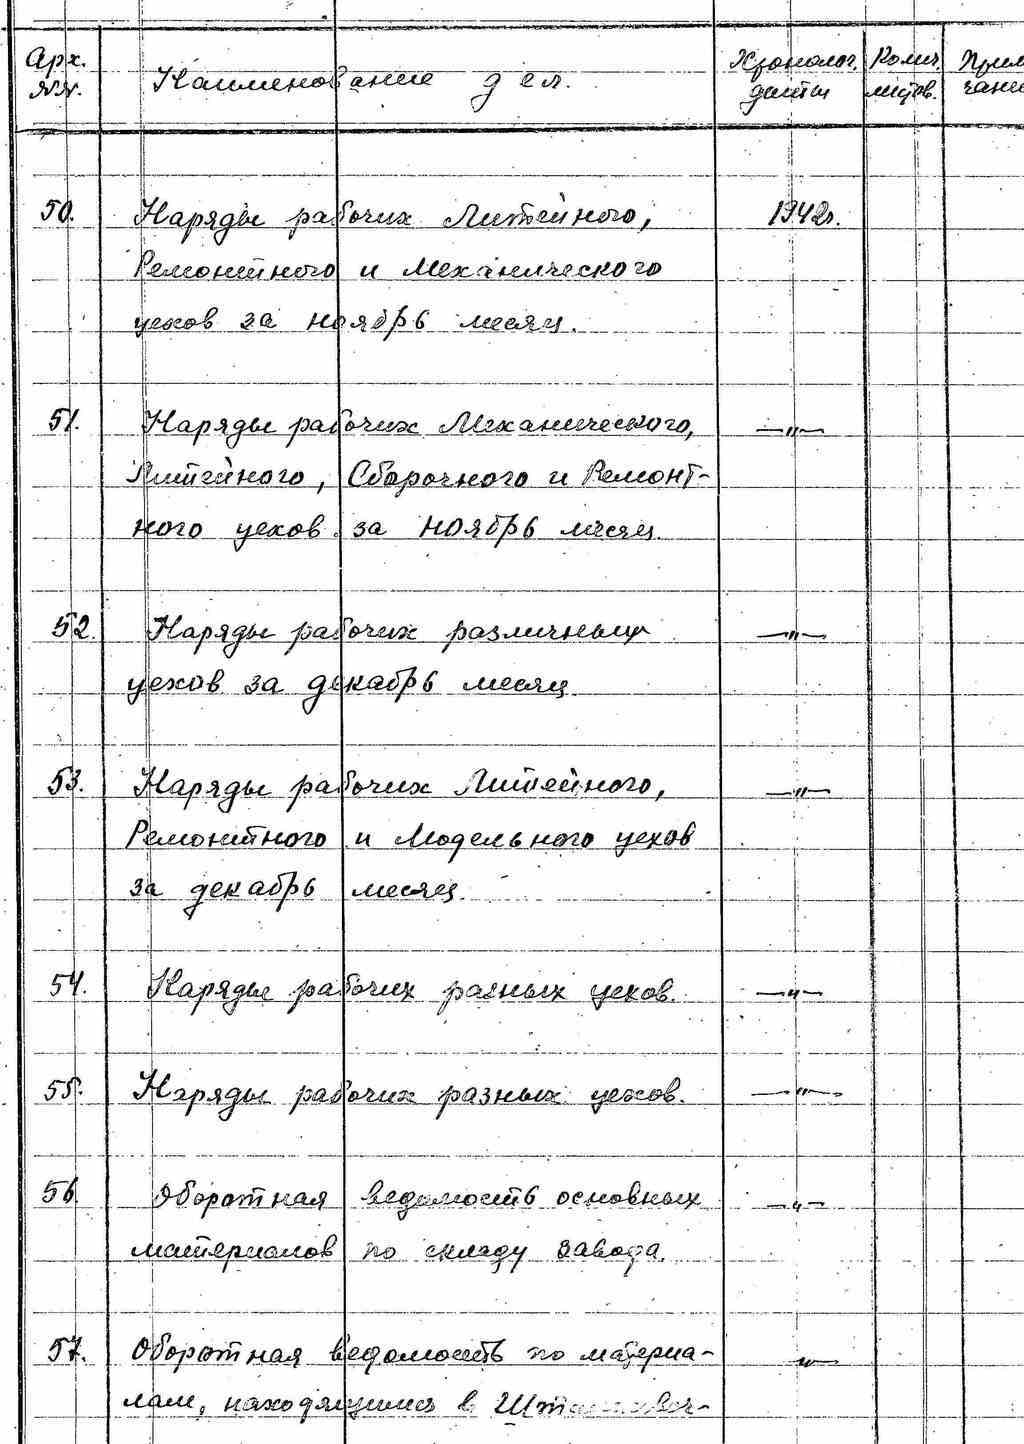 Арх. Наименование дел. Хронолог. Колич. Прим
№№. даты листов. чание
50. Наряды рабочих Литейного, 1942г.
Ремонтного и Механического
цехов за ноябрь месяц.
51. Наряды рабочих Механического, —"—
Литейного, Сборочного и Ремонт-
ного цехов за ноябрь месяц.
52. Наряды рабочих различных —"—
цехов за декабрь месяц
53. Наряды рабочих Литейного, —"—
Ремонтного и Модельного цехов
за декабрь месяц.
54. Наряды рабочих разных цехов. —"—
55. Наряды рабочих разных цехов. —"—
56. Оборотная ведомость основных —"—
материалов по складу завода.
57. Оборотная ведомость по материа- —"—
лам, находящимся в